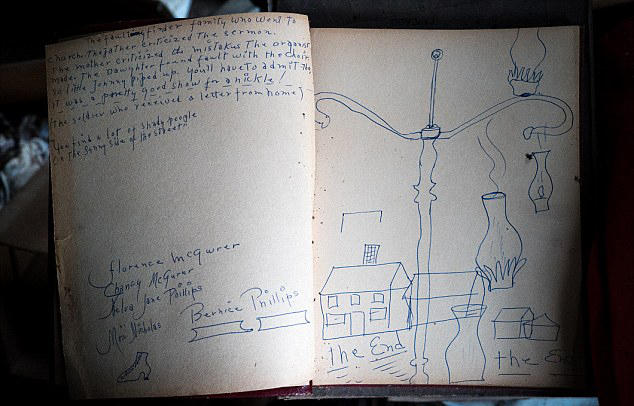 The faultfinder family who went to
church. The father criticized the sermon.
The mother criticized the mistakes The organist
made. The Daughter found fault with the choir
little Jonny piped up. You'll have to admit
it was a pretty good show for a nickle!
(The soldier who received a letter from home)
You find a lot of shady people
on the sunny side of the street
florence McGurer
Chancy McGurer
Melva Jane Phillips
Nicholas
Bernice Phillips
the End
the